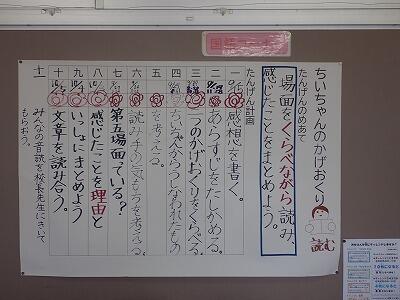 国語コーナー
ちいちゃんのかげおくり
読む
たんげんのめあて
場面をくらべながら読み、
感じたことをまとめよう。
たんげん計画
一 感想を書く。
二 あらすじをたしかめる。
三 二つのかげおくりをくらべる。
四 ちいちゃんからうしなわれたもの
を考える。
五
六 読み手の気もちを考える。
七 第五場面っている?
八 感じたことを理由と
九 いっしょにまとめよう
十 文章を読み合う。
十一 みんなの音読を校長先生にきいて
もらおう。